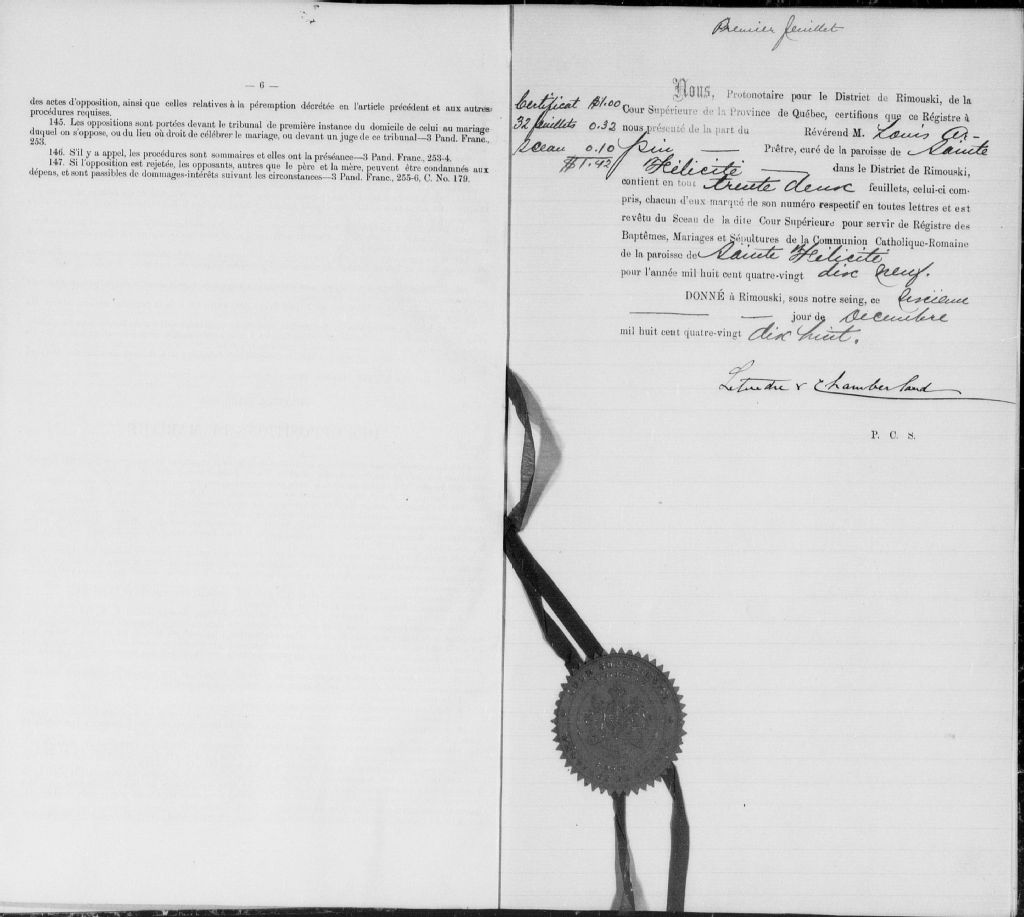 — 6 —
des actes d'opposition, ainsi que celles relatives à la péremption décrétée en l'article précédent et aux autres
procédures requises.
145. Les oppositions sont portées devant le tribunal de première instance du domicile de celui au mariage
duquel on s'oppose, ou du lieu où droit de célébrer le mariage, ou devant un juge de ce tribunal—3 Pand. Franc.,
253.
146. S'il y a appel, les procédures sont sommaires et elles ont la préséance—3 Pand. Franc., 253-4.
147. Si l'opposition est rejetée, les opposants, autres que le père et la mère, peuvent être condamnés aux
dépens, et sont passibles de dommages-intérêts suivant les circonstances—3 Pand. Franc., 255-6, C. No. 179.
Premier feuillet
Certificat $1.00
32 feuillets 0.32
Sceau 0.10
$1.42
Nous, Protonotaire pour le District de Rimouski, de la
Cour Supérieure de la Province de Québec, certifions que ce Régistre à
nous présenté de la part du Révérend M. Louis Ar-
pin — Prêtre, curé de la paroisse de Sainte
Félicité — dans le District de Rimouski,
contient en tout trente deux feuillets, celui-ci com-
pris, chacun d'eux marqué de son numéro respectif en toutes lettres et est
revêtu du Sceau de la dite Cour Supérieure pour servir de Régistre des
Baptêmes, Mariages et Sépultures de la Communion Catholique-Romaine
de la paroisse de Sainte Félicité
pour l'année mil huit cent quatre-vingt dix neuf.
DONNÉ à Rimouski, sous notre seing, ce sixième
— — jour de Decembre
mil huit cent quatre-vingt dix huit.
Letendre & Chamberland
P. C. S.